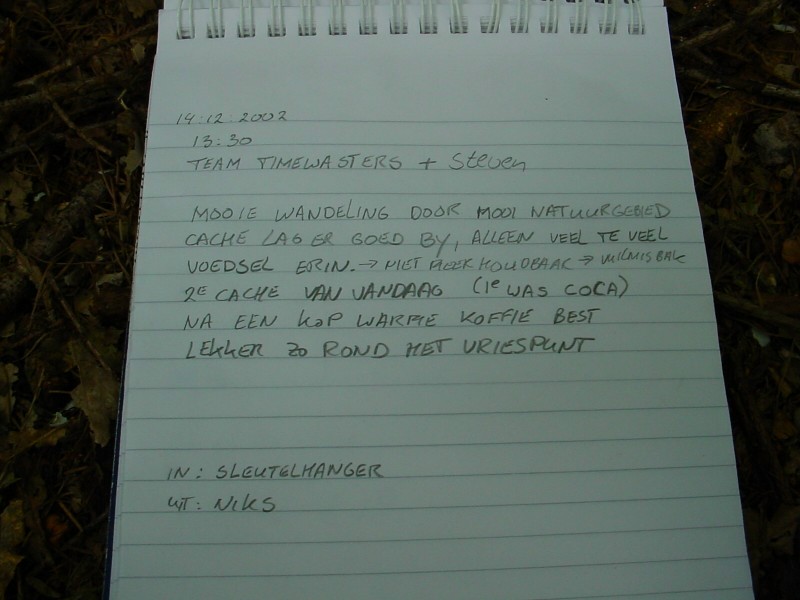 14.12.2002
13:30
TEAM TIMEWASTERS + Steven
MOOIE WANDELING DOOR MOOI NATUURGEBIED
CACHE LAG ER GOED BY, ALLEEN VEEL TE VEEL
VOEDSEL ERIN. → NIET MEER HOUDBAAR → VUILNISBAK
2E CACHE VAN VANDAAG (1e WAS COCA)
NA EEN KOP WARME KOFFIE BEST
LEKKER ZO ROND HET VRIESPUNT
IN: SLEUTELHANGER
UIT: NIKS